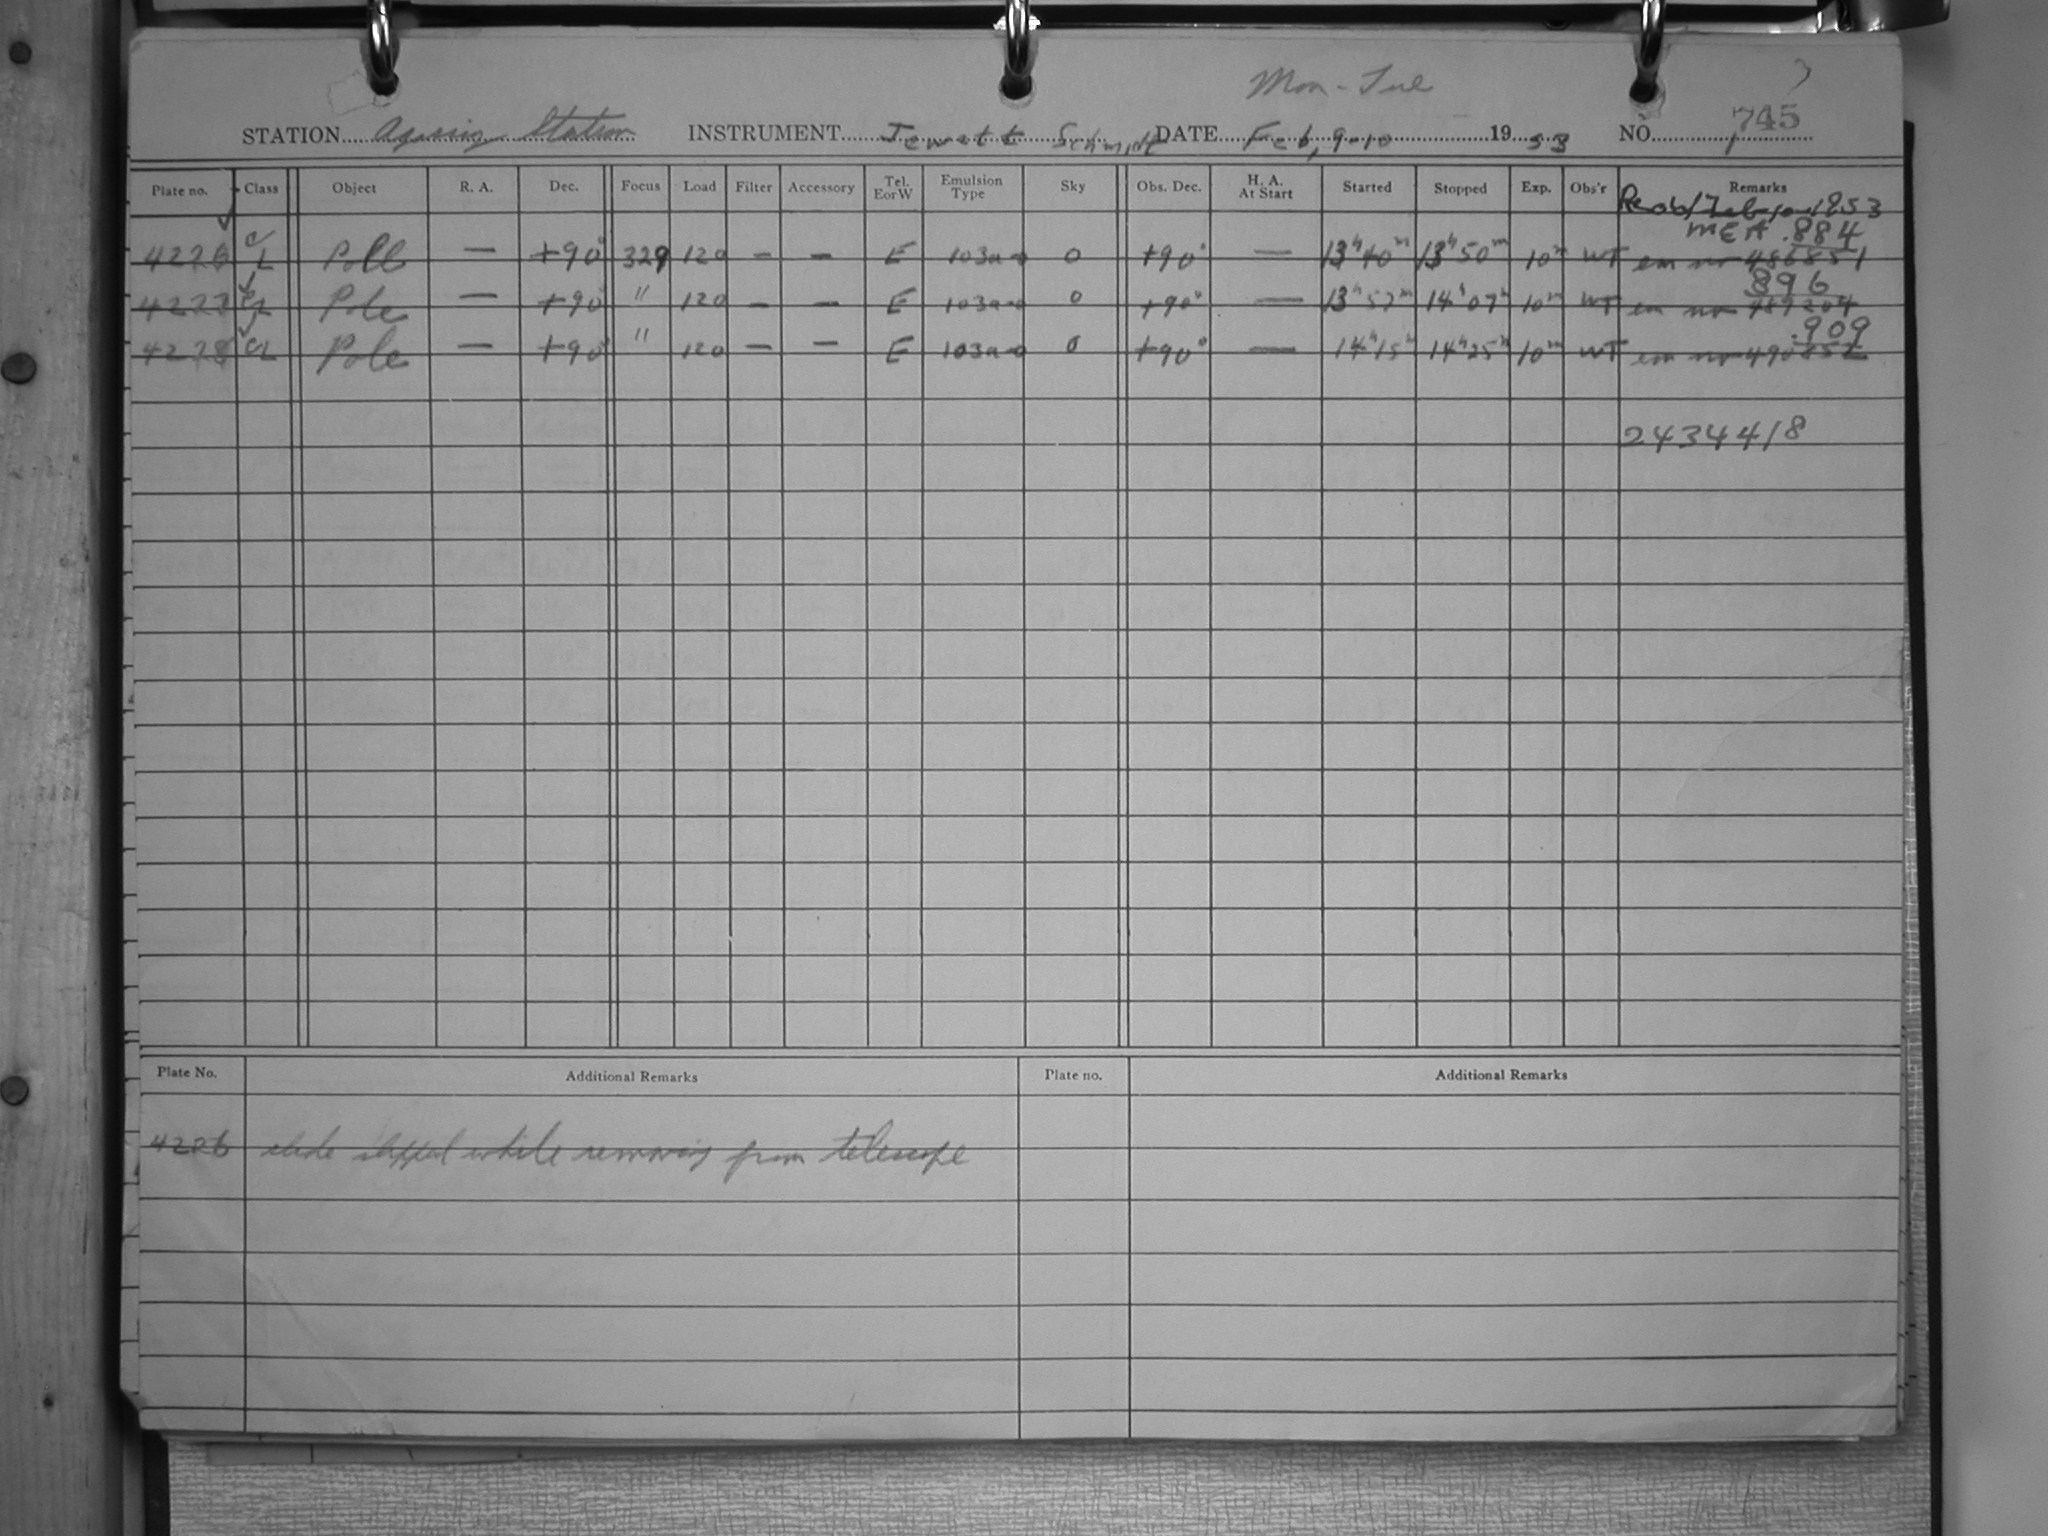 Mon - Tue
STATION Agassiz Station INSTRUMENT Jewett Schmidt DATE Feb, 9-10 1953 NO. 745
Plate no. Class Object R. A. Dec. Focus Load Filter Accessory Tel. E or W Emulsion Type Sky Obs. Dec. H. A. At Start Started Stopped Exp. Obs'r Remarks
1953
MEA .884
4226 CL Pole — +90° 329 120 — — E 103a-o 0 +90° — 13h 40m 13h 50m 10m WT em no 486851
896
4227 CL Pole — +90° " 120 — — E 103a-o 0 +90° — 13h 57m 14h 07m 10m WT em no 489204
.909
4228 CL Pole — +90° " 120 — — E 103a-o 0 +90° — 14h 15m 14h 25m 10m WT em no 490852
2434418
Plate No. Additional Remarks Plate no. Additional Remarks
4226 slide slipped while removing from telescope